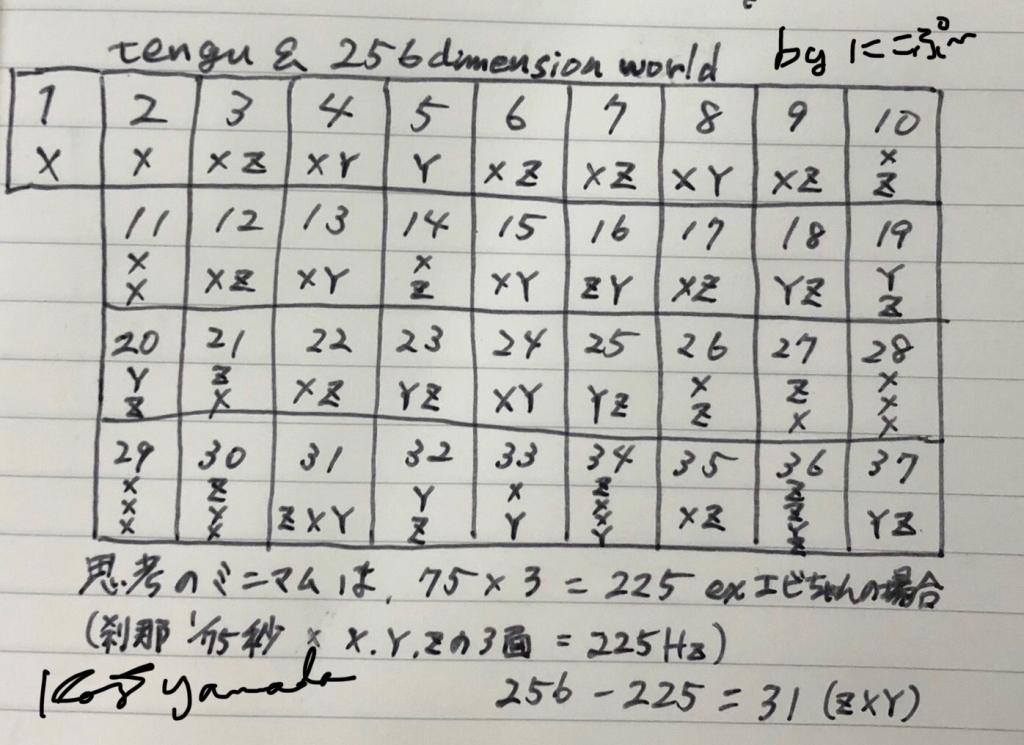 tengu & 256 dimension world by にこぷ~
1 2 3 4 5 6 7 8 9 10
X X XZ XY Y XZ XZ XY XZ X Z
11 12 13 14 15 16 17 18 19
X X XZ XY X Z XY ZY XZ YZ Y Z
20 21 22 23 24 25 26 27 28
Y Z Z X XZ YZ XY YZ X Z Z X X X X
29 30 31 32 33 34 35 36 37
X X X Z X X ZXY Y Z X Y Z X X Y XZ Z Z Y Z YZ
思考のミニマムは、75×3=225 ex エビちゃんの場合
(刹那 1/75秒 × X.Y.Zの3面=225Hz)
yamada 256-225=31 (ZXY)